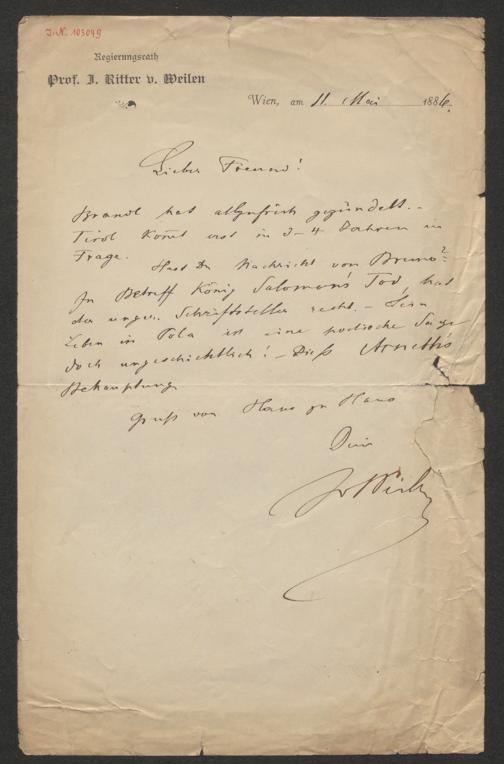 I. N. 103049
Regierungsrath
Prof. J. Ritter v. Weilen
Wien, am 11. Mai 1886.
Lieber Freund!
Brandl hat allzufrüh gezündelt. –
Tirol kom̄t erst in 3–4 Jahren in
Frage.
Hast Du Nachricht von Bruno?
In Betreff König Salomon's Tod, hat
der ungar. Schriftsteller recht. – Sein
Leben in Pola ist eine poetische Sage
doch ungeschichtlich! – Dieß Arneth's
Behauptung.
Gruß von Haus zu Haus
Dein
JvWeilen